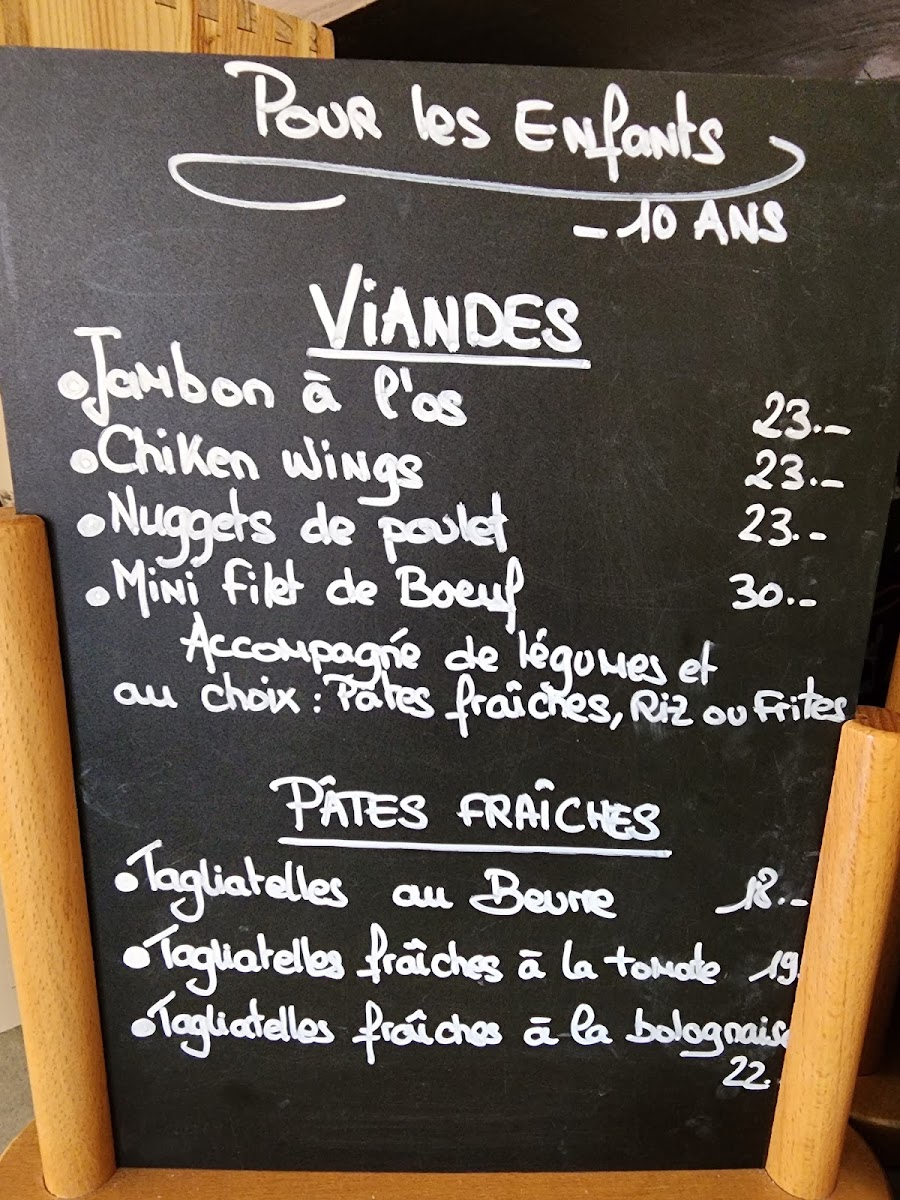 Pour les Enfants
- 10 ANS
ViANDES
• Jambon à l'os 23.-
• Chiken wings 23.-
• Nuggets de poulet 23.-
• Mini filet de Boeuf 30.-
Accompagné de légumes et
au choix : Pâtes fraîches, Riz ou Frites
PÂTES FRAÎCHES
• Tagliatelles au Beurre 18.-
• Tagliatelles fraîches à la tomate 19.
• Tagliatelles fraîches à la bolognaise
22.